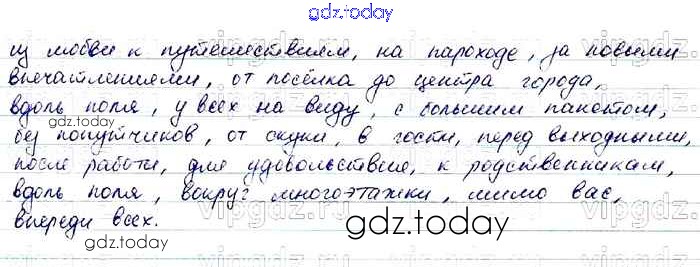 gdz.today
из любви к путешествиям, на пароходе, за новыми
впечатлениями, от посёлка до центра города,
вдоль поля, у всех на виду, с большим пакетом,
без попутчиков, от скуки, в гости, перед выходными,
после работы, для удовольствия, к родственникам,
вдоль поля, вокруг многоэтажки, мимо вас,
впереди всех.
gdz.today
gdz.today
gdz.today